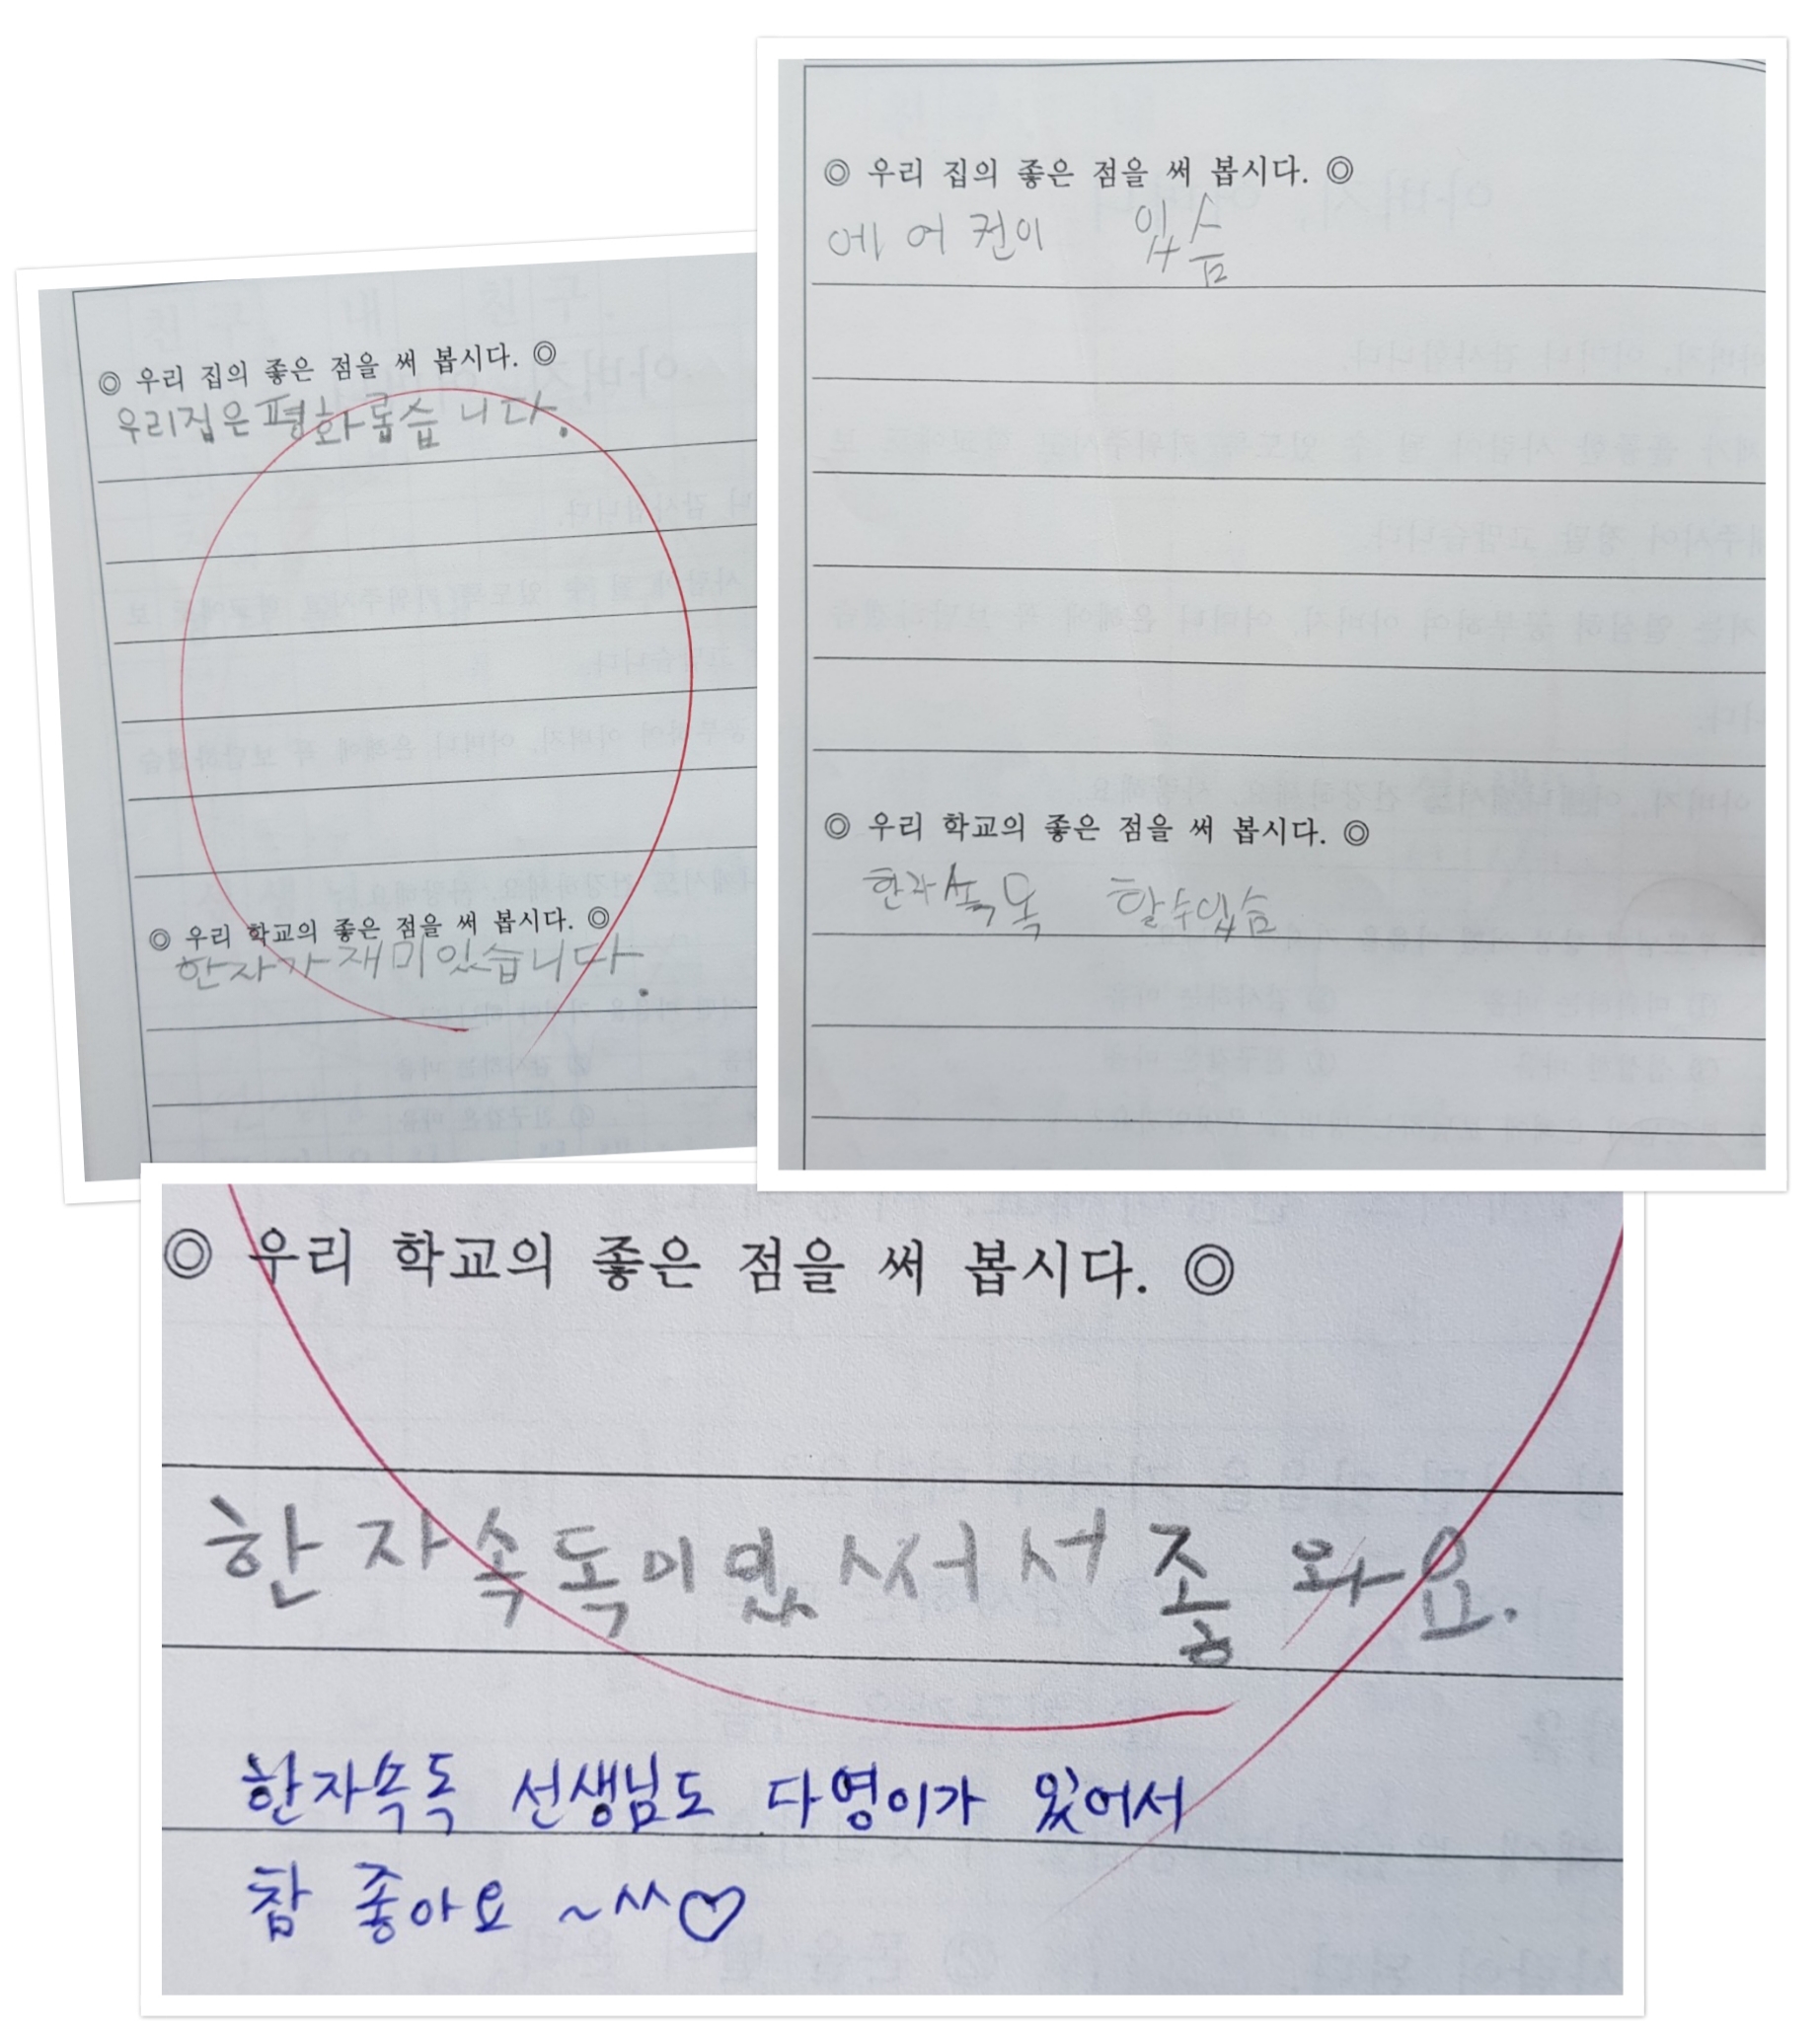 ◎ 우리 집의 좋은 점을 써 봅시다. ◎
우리집은 평화롭습니다.
◎ 우리 학교의 좋은 점을 써 봅시다. ◎
한자가 재미있습니다.
◎ 우리 집의 좋은 점을 써 봅시다. ◎
에어컨이 있슴
◎ 우리 학교의 좋은 점을 써 봅시다. ◎
한자속독 할수있슴
◎ 우리 학교의 좋은 점을 써 봅시다. ◎
한자속독이있써서좋와요.
한자속독 선생님도 다영이가 있어서
참 좋아요 ~^^♡